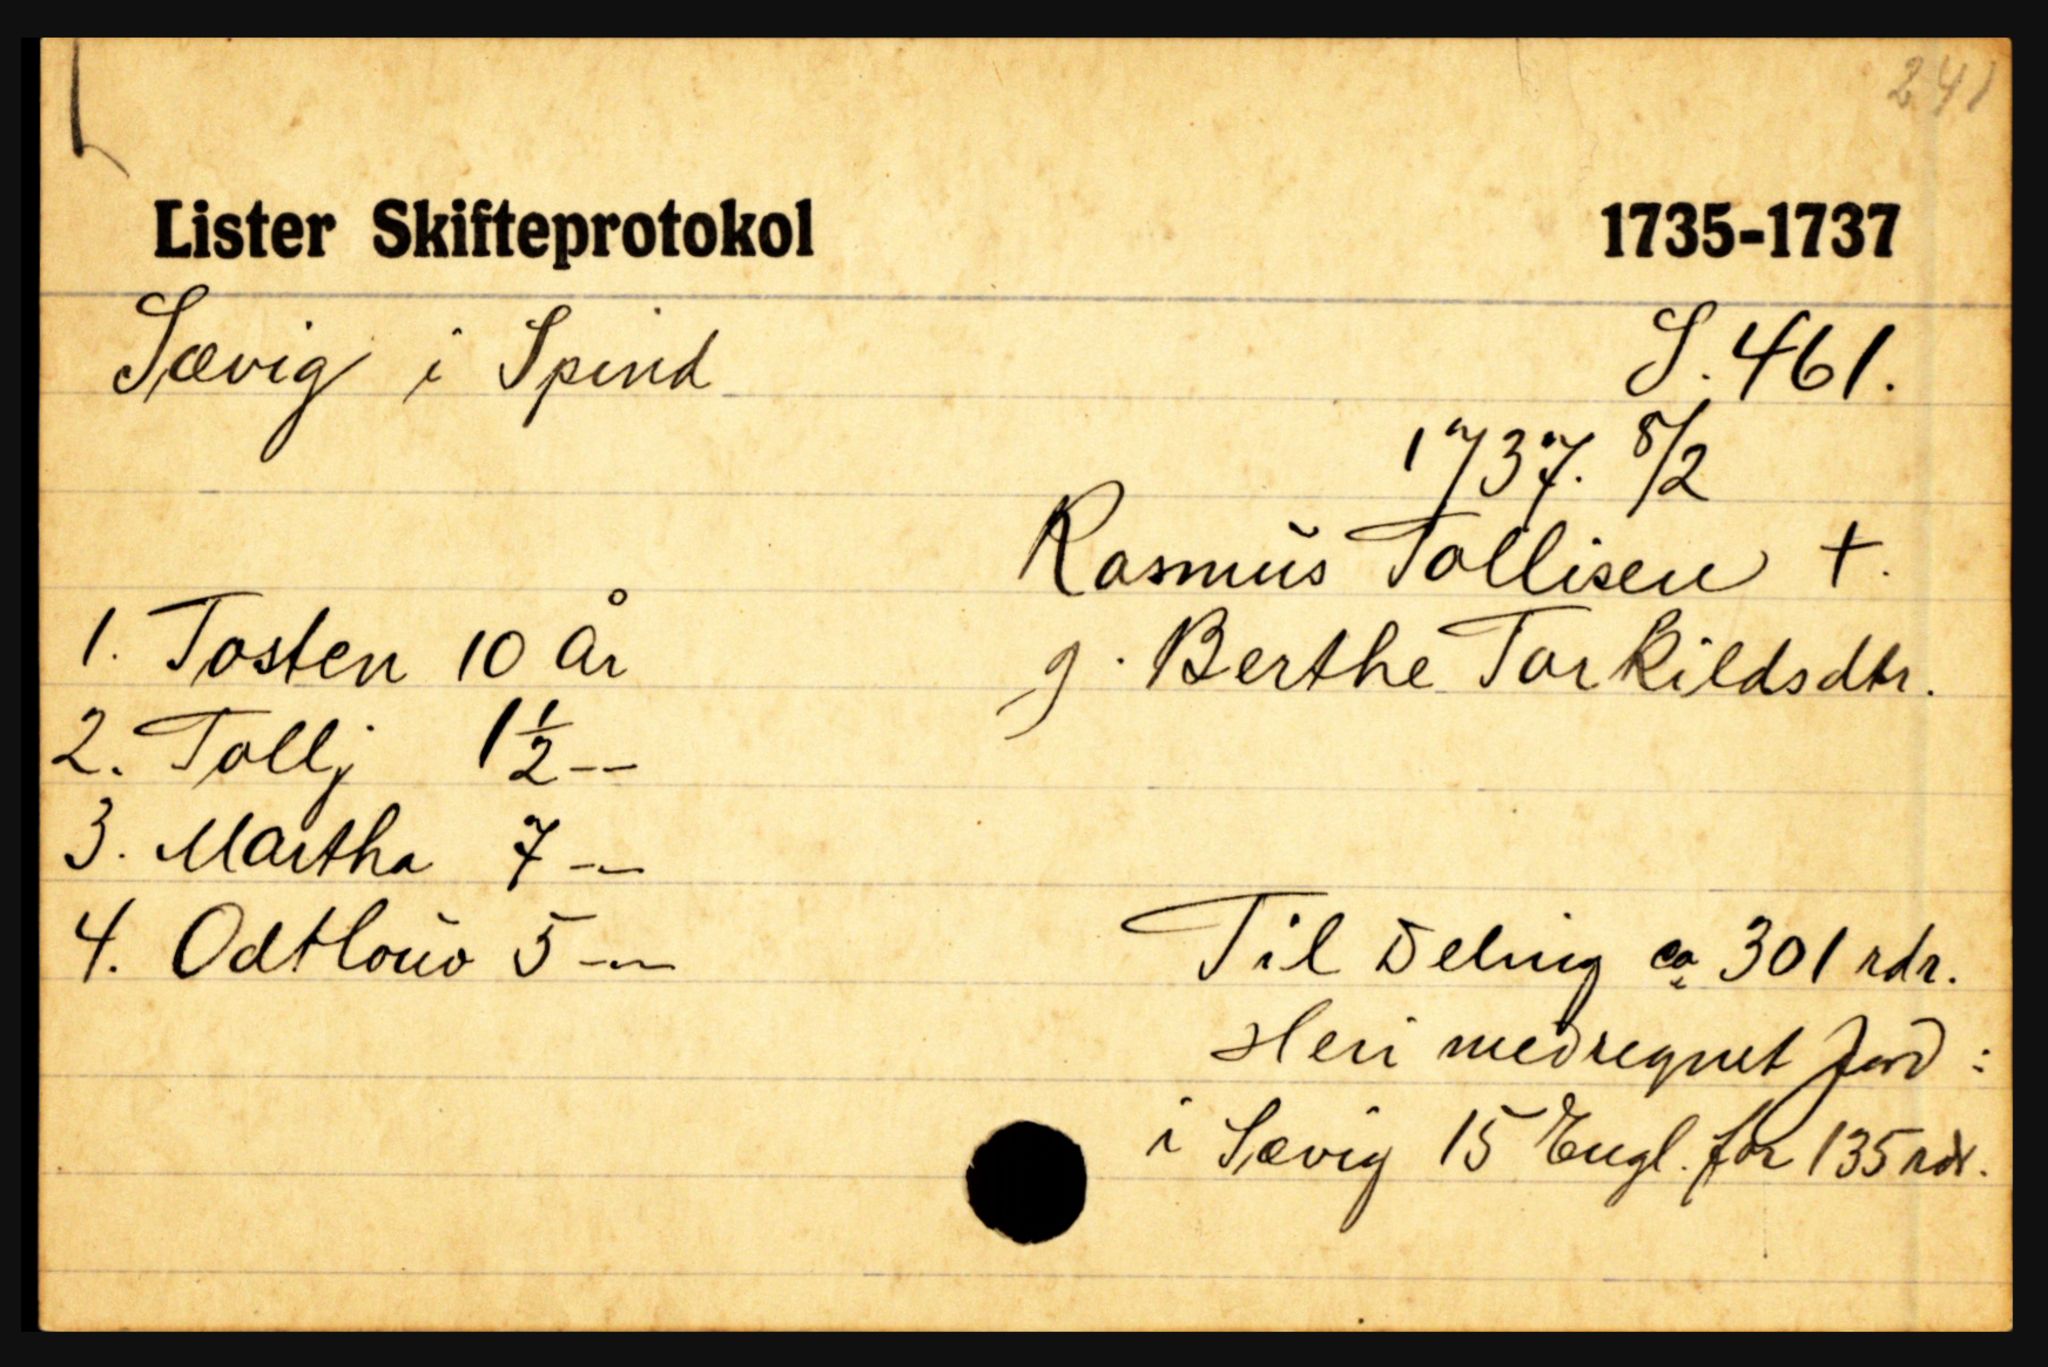 241
Lister Skifteprotokol 1735-1737
Sævig i Spind S. 461.
1737. 8/2
Rasmus Tollisen +.
g. Berthe Torkildsdtr.
1. Tosten 10 År
2. Tollj 1 1/2 --
3. Martha 7 --
4. Odtlouv 5 --
Til Deling ca 301 rdr.
Heri medregnet Jord :
i Sævig 15 Engl. for 135 rdr.